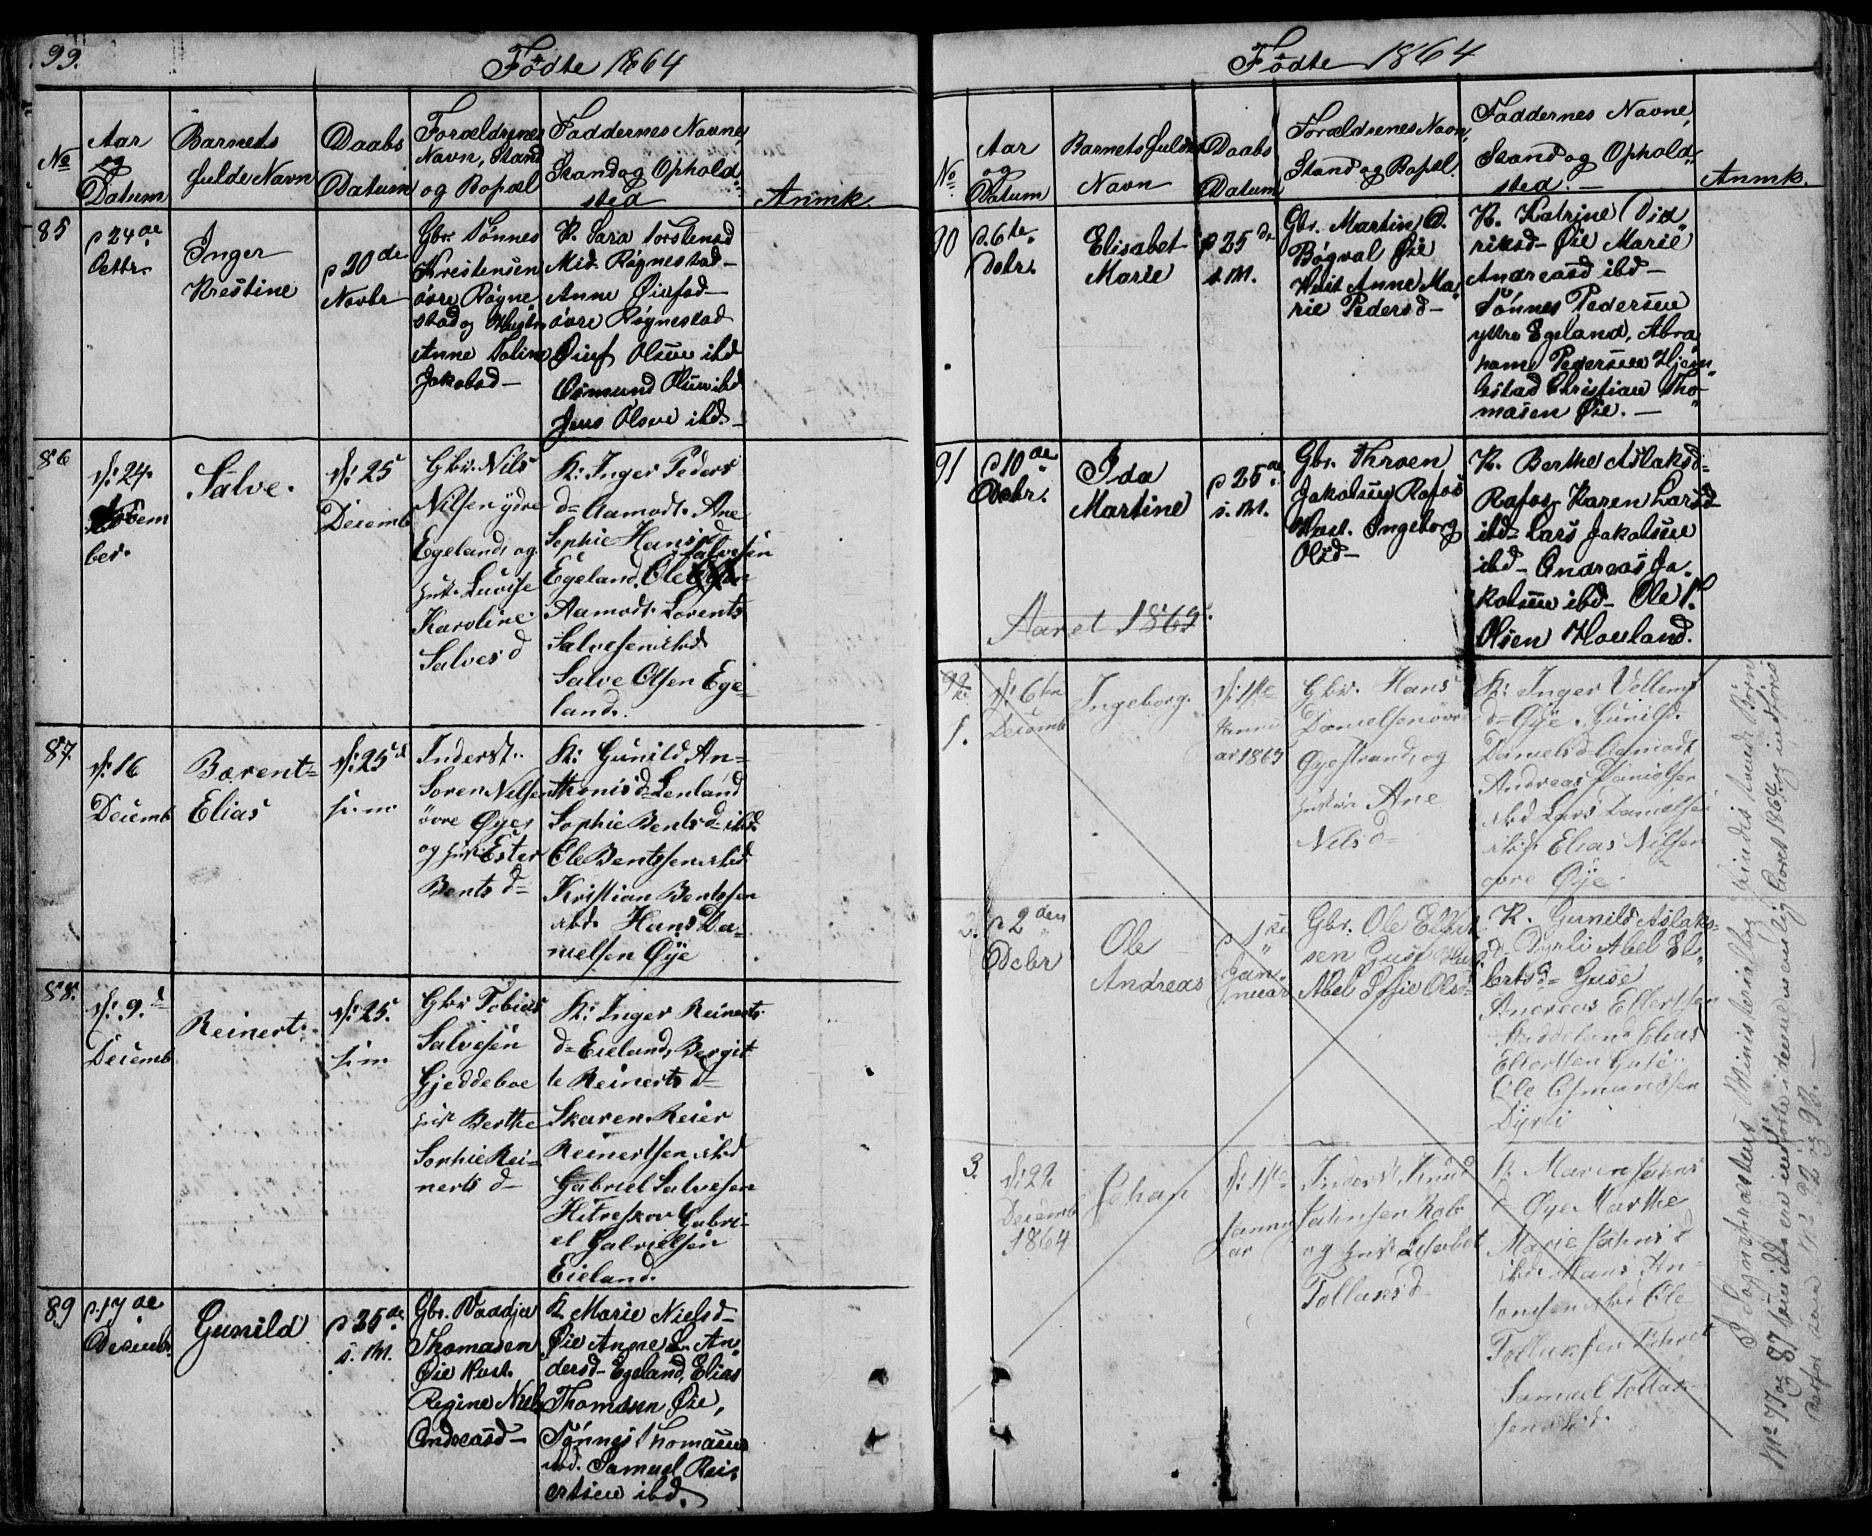 99.
Fødte 1864
No
Aar
og
Datum
Barnets
fulde Navn
Daabs
Datum
Forældrenes
Navn, Stand
og Bopæl
Faddernes Navne,
Stand og Ophold-
sted
Anmk.
85
p 24de
Octbr.
Inger
Krestine
p 20de
Novbr
Gbr. Tønnes
Krestensen
øvre Røgne
stad og Hustr
Anne Taline
Jakobsd-
K. Sara Torstensd
Mid. Røgnestad-
Anne
øvre Røgnestad
Olsen ibd
Osmund Olsen ibd
Jens Olsen ibd.-
86
d: 24.
ber.
Salve.
d: 25
Decemb
Gbr. Nils
Nilsen ydre
Egeland, og
Hust. Lovise
Karoline
Salvesd
K: Inger Peders
d= Aamodt. Ane
Sophie Hansd
Salvesen
Egeland. Ole
Aamodt. Lorents
Salvesen ibd
Salve Olsen Ege-
land.
87.
d: 16
Decemb
Barent=
Elias
d: 25
s: m.
Inderst:
Soren Nilsen
øvre Øye,
og Hust Ester
Bentsd=
K: Gunild An-
thonisd= Lenland
Sophie Bentsd= ibd.
Ole Bentssen ibd
Kristian Bentssen
ibd. Hans Da-
nielsen Øye
88.
d: 9.d
Decemb
Reinert.
d: 25.
s: m
Gbr Tobias
Salvesen
Gjeddeboe
Hust Berthe
Sophie Rei-
nertsd-
K: Inger Reinerts
d= Eieland, Bergit
te Reinertsd=
Skaren. Reier
Reinertsen ibd
Gabriel Salvesen
Hitreskov Gabri-
el Gabrielsen
Eieland.
89
p. 17de
Decembr
Gunild
p 25de
s. M.
Gbr. Daadja
Thomasen
Øie Hust.
Regine Niels
Andreasd-
K. Marie Nielsd-
Øie Anne L. An
dersd- Egeland, Elias
Thomasen Øie,
Tønnes Thomasen
ibd. Samuel Rei-
ertsen ibd.
Fødte 1864
No.
Aar
og
Datum
Barnets fulde
Navn
Daabs
Datum
Forældrenes Navn,
Stand og Bopæl
Faddernes Navne,
Stand og Ophold-
sted.-
Anmk.
90
p. 6te
Debr.
Elisabet
Marie
p 25de
s. M.
Gbr. Martin A.
Bøgval Øie
Hust Anne Ma-
rie Pedersd-
K. Katrine Did
riksd- Øie Marie
Andreasd ibd-
Tønnes Pedersen
yttre Egeland, Abra
ham Pedersen Hjem-
bstad Christian Tho-
masen Øie.-
91
p 10de
Debr.
Ida
Martine
p 25de
s. M.
Gbr. Throen
Jakobsen Rafos
Hust. Ingeborg
Olsd-
K. Berthe Aslaksd=
Rafos. Karen Larsd-
ibd- Lars Jakobsen
ibd- Andreas Ja-
kobsen ibd- Ole
Olsen Houland.
Aaret 1865.
92
1.
d: 6te
Decemb
Ingeborg.
d: 1ste
Janu
ar 1865
Gbr. Hans
Danielsen øvre
Øyestrand, og
Hustru Ane
Nilsd=
K: Inger Vellems
d= Øye, Gunild
Danielsd Aamodt
Andreas Danielsen
ibd Lars Danielsen
ibid Elias Nilsen
øvre Øye.
2.
p 2den
Debr
Ole
Andreas
p 1ste
Jan-
nuar
Gbr. Ole Ellert
sen Guse Hust
Abel Sofie Olsd=
K. Gunild Aslaks-
d. Dyrli Abel El-
lertsd= Guse
Andreas Ellertsen
Elias
Ellertsen Guse
Ole Osmundsen
Dyrli
3.
d: 22
Decemb
1864
Johan
d: 1ste
Janu
ar
Inderst Knud
Jahnsen
og Hust Lisabet
Tollaksd-
K: Maren Jahns
d Øye Marthe
Marie Jahnsd
ibd. Hans An-
tonsen ibd Ole
Tollaksen
Samuel Tollak-
sen ibd.
I Sognepræstens Ministerialbog findes tvende Børn
No 77 og 87 som ikke ere indførte i denne